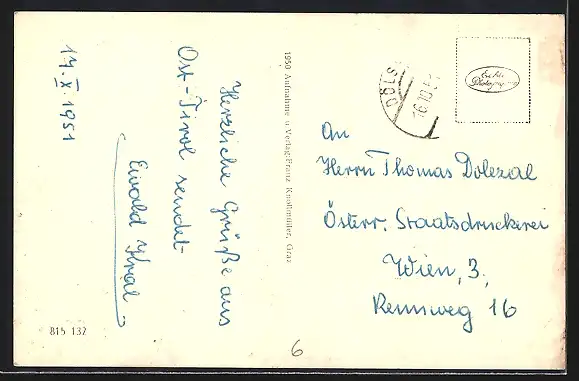 14.X.1951
Herzliche Grüße aus
Ost-Tirol sendet
Ewald Kral
1950 Aufnahme u Verlag: Franz Knollmüller, Graz
DÖLS
16.10.51
Echte
An
Herrn Thomas Dolezal
Österr. Staatsdruckerei
Wien, 3,
Rennweg 16
815 132
6